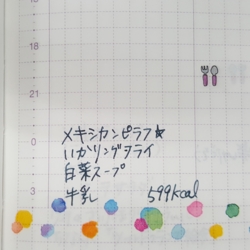 18
21
0
メキシカンピラフ★
いかリングフライ
白菜スープ
3
牛乳 599kcal